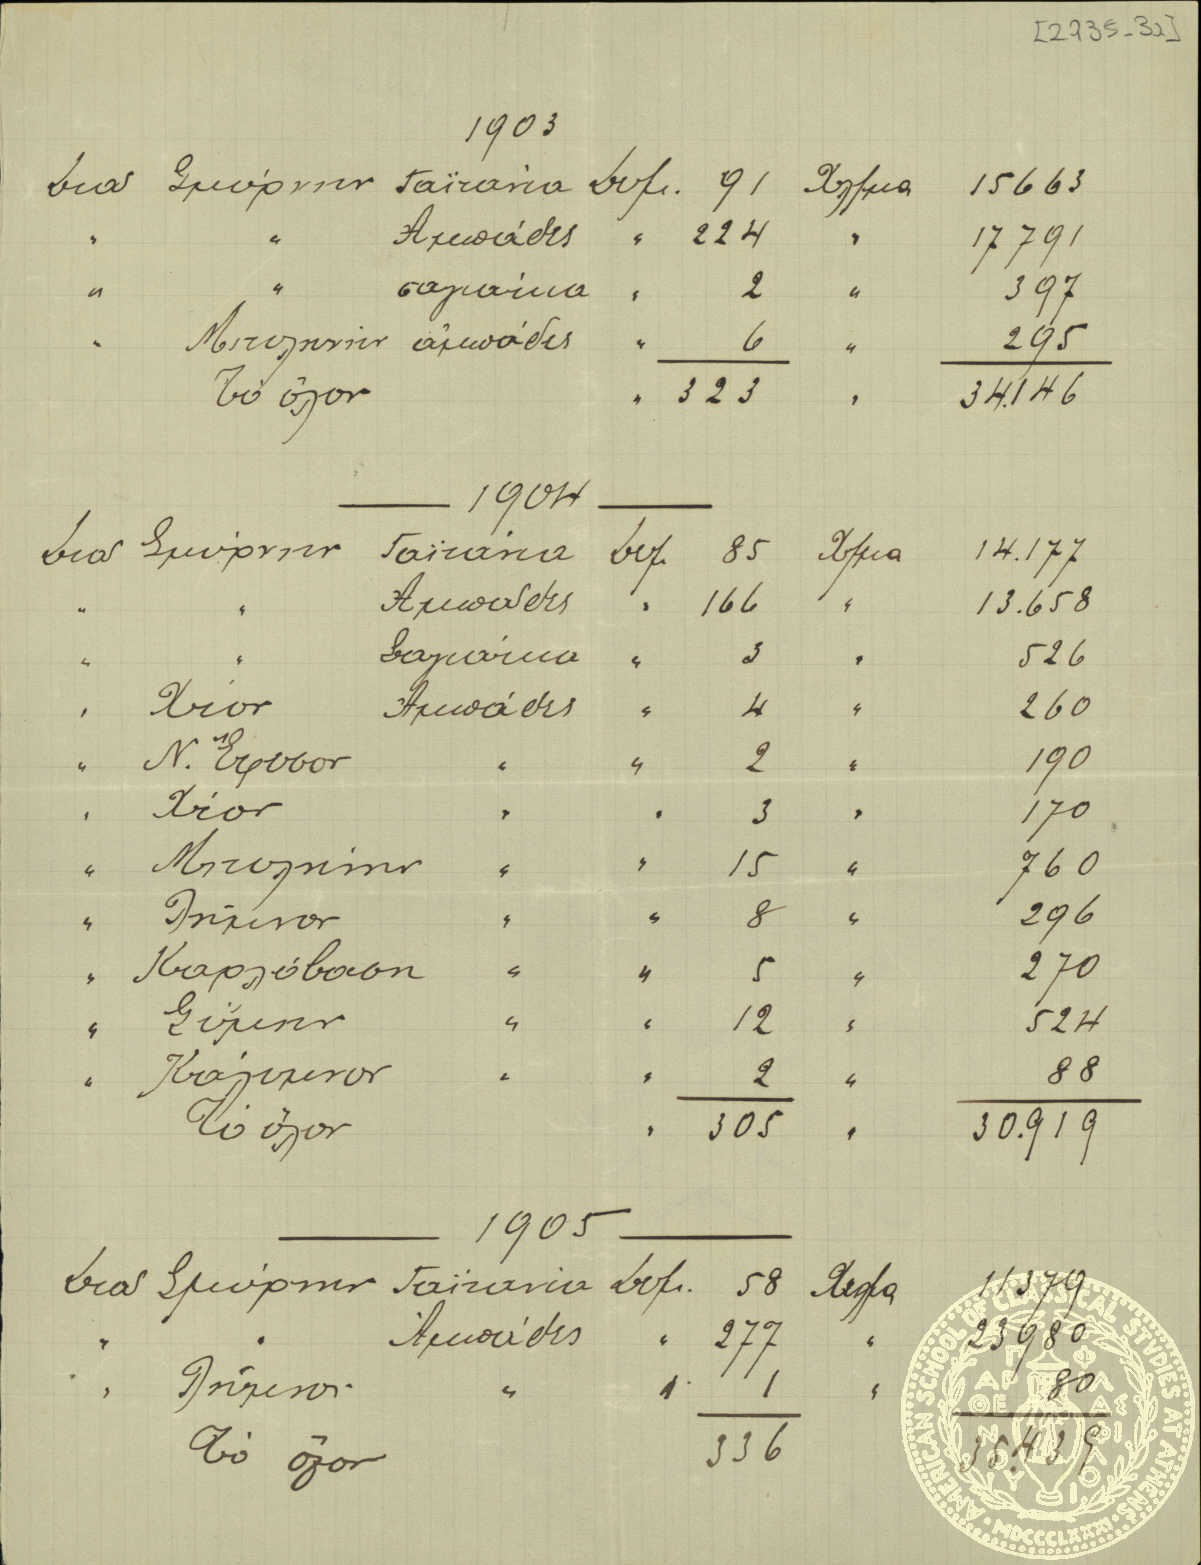 [2735-32]
1903
Διά Σμύρνην Γαϊτάνια Δέμ. 91 Χλγμα 15663
" " Αμπάδες " 224 " 17791
" " σαγιάκια " 2 " 397
" Μιτυλήνην αμπάδες " 6 " 295
Τό όλον " 323 " 34.146
1904
Διά Σμύρνην Γαϊτάνια Δεμ. 85 Χγμα 14.177
" " Αμπάδες " 166 " 13.658
" " Σαγιάκια " 3 " 526
" Χίον Αμπάδες " 4 " 260
" Ν. Έφεσον " " 2 " 190
" Χίον " " 3 " 170
" Μιτυλήνην " " 15 " 760
" Λήμνον " " 8 " 296
" Καρλόβασι " " 5 " 270
" Σύμην " " 12 " 524
" Κάλυμνον " " 2 " 88
Τό όλον " 305 " 30.919
1905
Διά Σμύρνην Γαϊτάνια Δέμ. 58 11379
" " Αμπάδες " 277 " 23980
" Λήμνον " " 1 " 80
Τό όλον 336 35.439
AMERICAN SCHOOL OF CLASSICAL STUDIES AT ATHENS
MDCCCLXXXI
ΠΑΡΘΕΝΟΥ ΦΙΛΑΣ ΦΙΛΟΙ